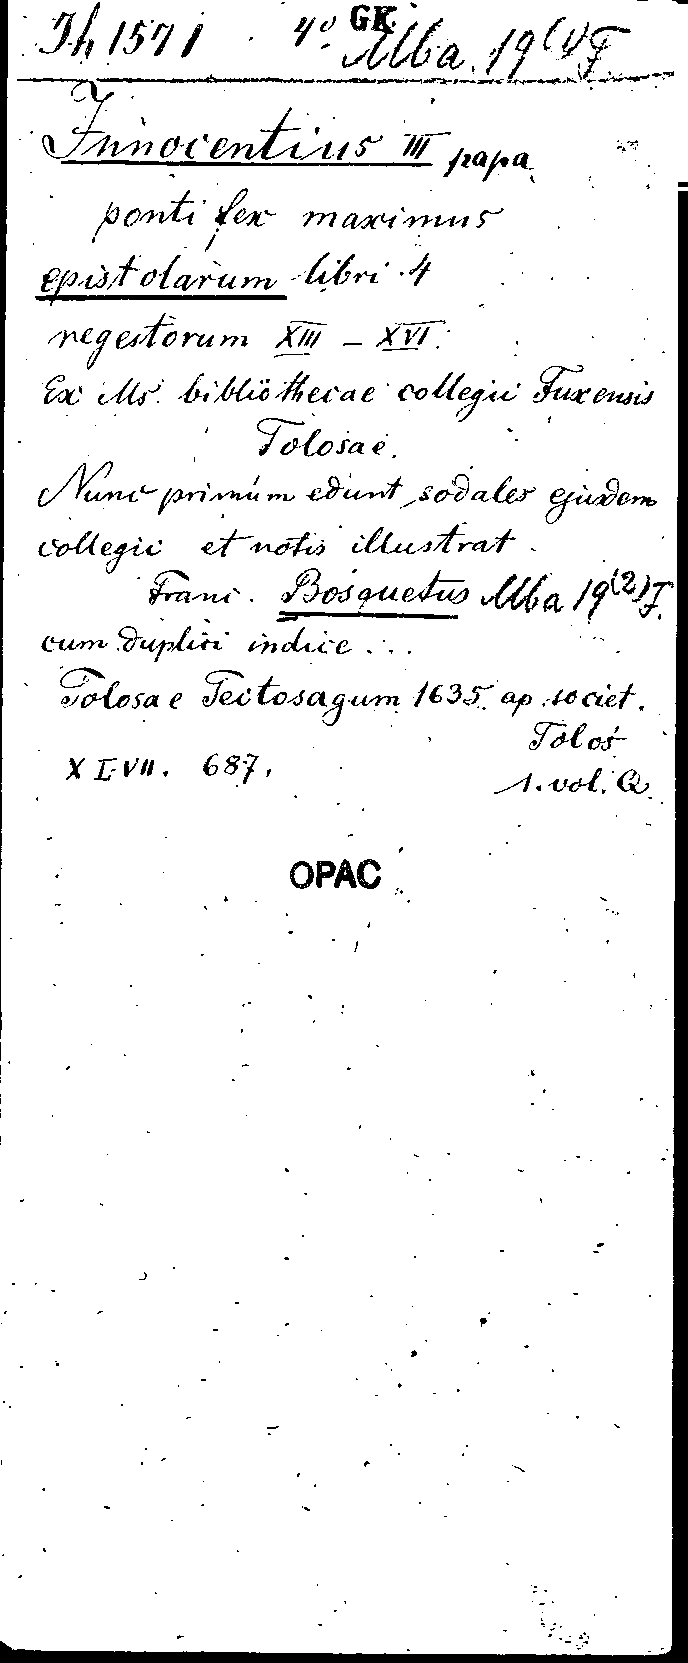 Th 1571 4° GK Alba 19 (1) F
Innocentius III papa
pontifex maximus
epistolarum libri 4
regestorum XIII – XVI.
Ex Ms. bibliothecae collegii Fuxensis
Tolosae.
Nunc primum edunt sodales ejusdem
collegii et notis illustrat
Franc. Bosquetus Alba 19 (2) F.
cum duplici indice ...
Tolosae Tectosagum 1635. ap. societ.
Tolos
XLVII. 687.
1. vol. Q.
OPAC